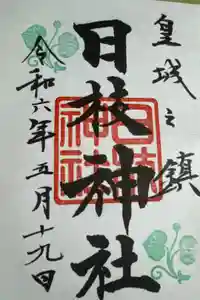 皇城之鎮
日枝神社
令和六年五月十九日